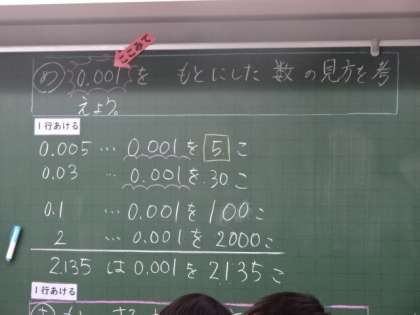 ここみて
め 0.001を もとにした 数 の見方を考
えよう。
1行あける
0.005 … 0.001を 5 こ
0.03 … 0.001を 30こ
0.1 … 0.001を 100こ
2 … 0.001を 2000こ
2.135 は 0.001を 2135こ
1行あける